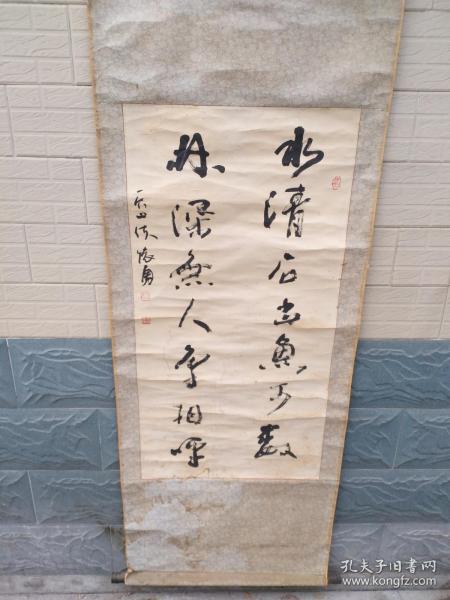 水清石出魚可數
林深無人鳥相呼
孔夫子旧书网
www.kongfz.com